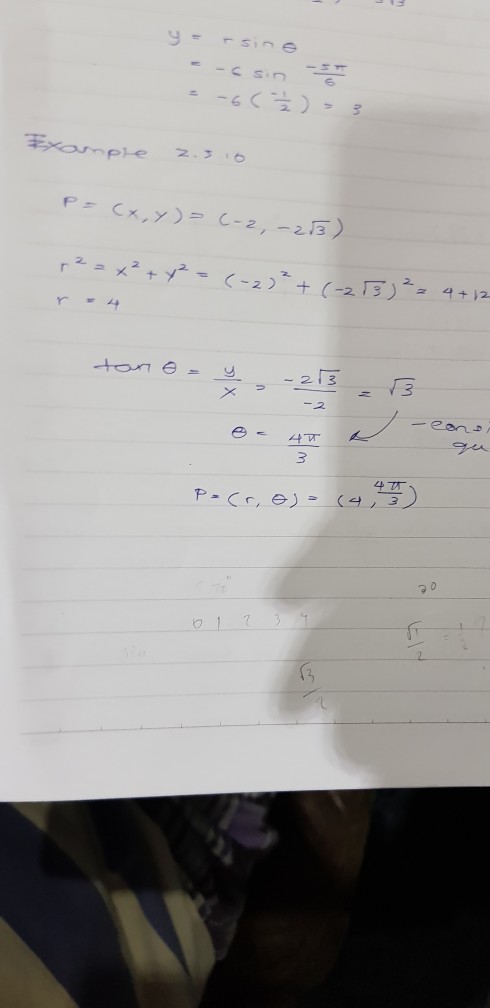 y = r sin θ
= -6 sin -5π/6
= -6 (-1/2) = 3
Example 2.3.10
P = (x, y) = (-2, -2√3)
r² = x² + y² = (-2)² + (-2√3)² = 4 + 12
r = 4
tan θ = y/x = -2√3/-2 = √3
θ = 4π/3
P = (r, θ) = (4, 4π/3)
0 1 2 3 4
√1/2
√3/2
sin